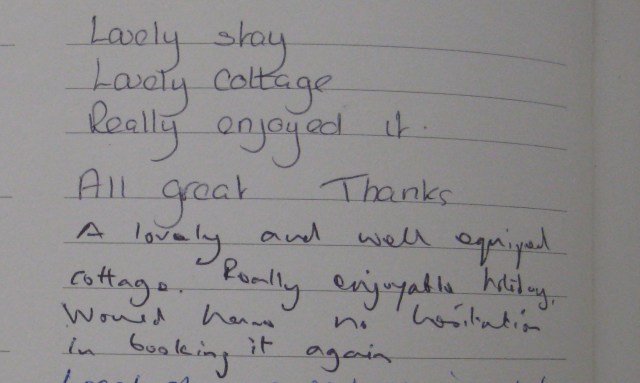 Lovely stay
Lovely cottage
Really enjoyed it.
All great Thanks
A lovely and well equiped
cottage. Really enjoyable holiday.
Would have no hesitation
in booking it again